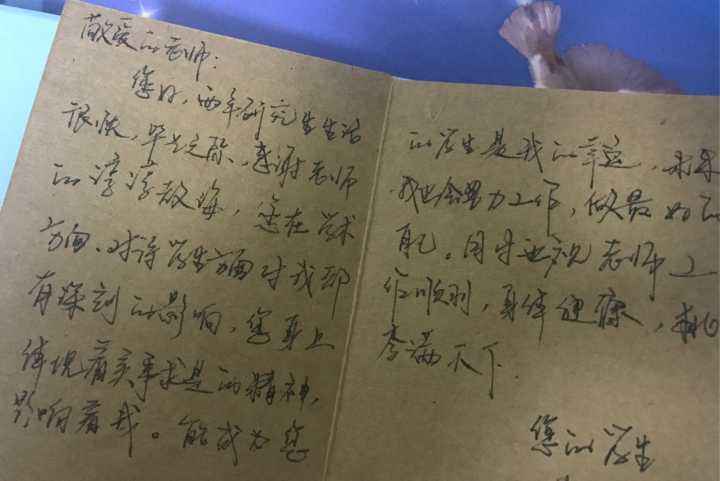 敬爱的老师：
您好，两年研究生生活
很快，毕业之际，感谢老师
的谆谆教诲，您在学术
方面、对待学生方面对我都
有深刻的影响，您身上
体现着实事求是的精神，
影响着我。能成为您
的学生是我的幸运，未来
我也会努力工作，做最好的
自己。同时也祝老师工
作顺利，身体健康，桃
李满天下.
您的学生